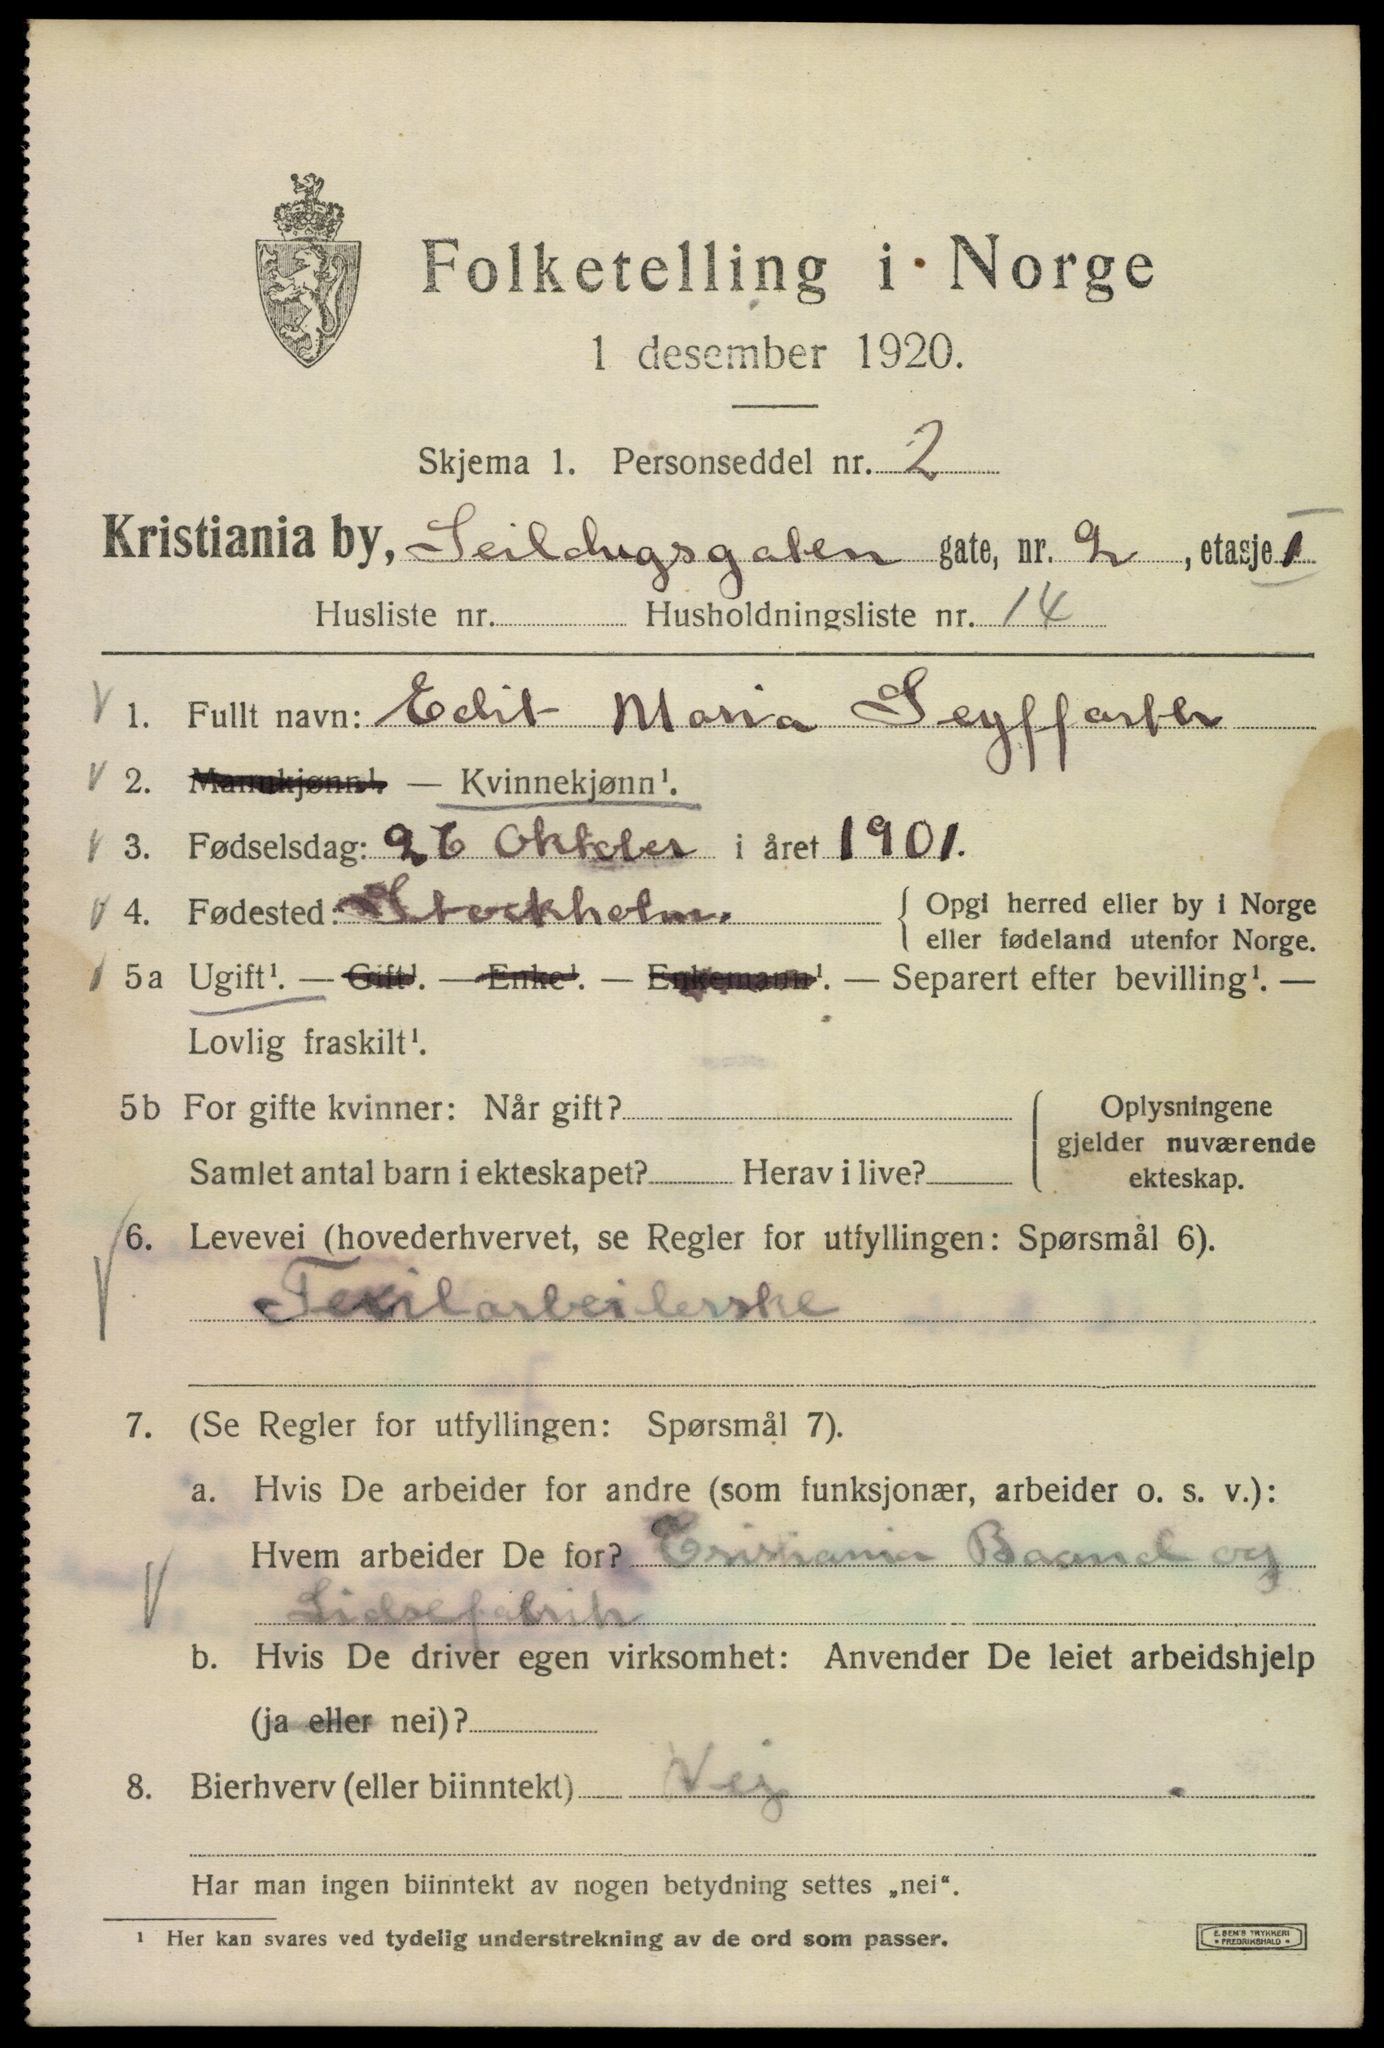 Folketelling i Norge
1 desember 1920.
Skjema 1. Personseddel nr. 2
Kristiania by, Seildugsgaten gate, nr. 2, etasje I
Husliste nr. Husholdningsliste nr. 14
1. Fullt navn: Edit Maria Seyffarth
2. Mannkjønn¹. — Kvinnekjønn¹.
3. Fødselsdag: 26 Oktober i året 1901.
4. Fødested: Stockholm. Opgi herred eller by i Norge
eller fødeland utenfor Norge.
5a Ugift¹. — Gift¹. — Enke¹. — Enkemann¹. — Separert efter bevilling¹. —
Lovlig fraskilt¹.
5b For gifte kvinner: Når gift? Oplysningene
gjelder nuværende
Samlet antal barn i ekteskapet? Herav i live? ekteskap.
6. Levevei (hovederhvervet, se Regler for utfyllingen: Spørsmål 6).
Texilarbeilerske
7. (Se Regler for utfyllingen: Spørsmål 7).
a. Hvis De arbeider for andre (som funksjonær, arbeider o. s. v.):
Hvem arbeider De for? Cristiania Baand og
Lidsefabrik
b. Hvis De driver egen virksomhet: Anvender De leiet arbeidshjelp
(ja eller nei)?
8. Bierhverv (eller biinntekt) Nej
Har man ingen biinntekt av nogen betydning settes „nei“.
¹ Her kan svares ved tydelig understrekning av de ord som passer.
E. SEM'S TRYKKERI
• FREDRIKSHALD •